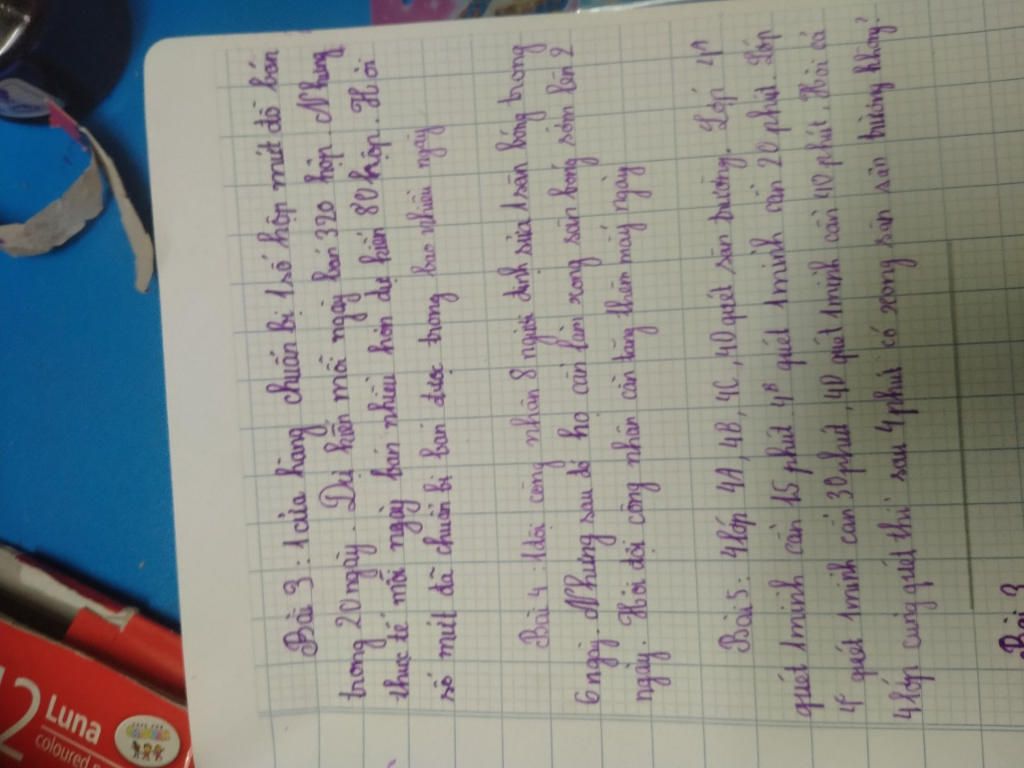 Bài 3: 1 cửa hàng chuẩn bị 1 số hộp mứt để bán
trong 20 ngày. Dự kiến mỗi ngày bán 320 hộp. Nhưng
thực tế mỗi ngày bán nhiều hơn dự kiến 80 hộp. Hỏi
số mứt đã chuẩn bị bán được trong bao nhiêu ngày
Bài 4: 1 đội công nhân 8 người định sửa 1 sân bóng trong
6 ngày. Nhưng sau đó họ cần làm xong sân bóng sớm lên 2
ngày. Hỏi đội công nhân cần tăng thêm mấy ngày
Bài 5: 4 lớp 4A, 4B, 4C, 4D quét sân trường. Lớp 4A
quét 1 mình cần 15 phút 4B quét 1 mình cần 20 phút. Lớp
4C quét 1 mình cần 30 phút, 4D quét 1 mình cần 40 phút. Hỏi cả
4 lớp cùng quét thì sau 4 phút có xong sân trường không?
Bài 3
12
Luna
coloured